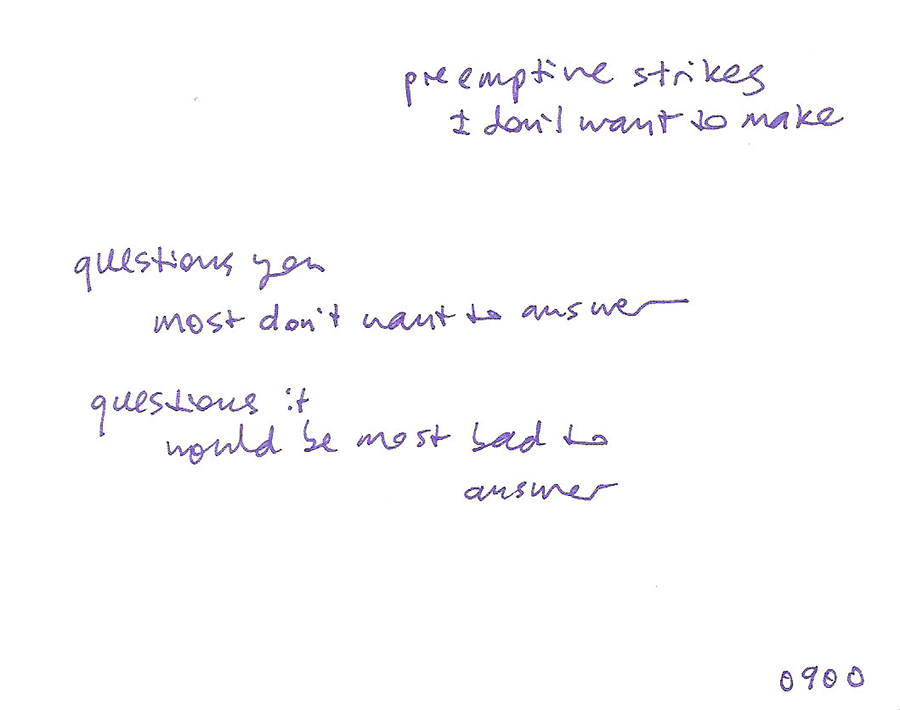 preemptive strikes
I don't want to make
questions you
most don't want to answer
questions it
would be most bad to
answer
0900